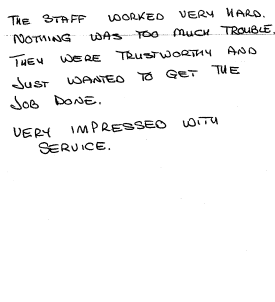 THE STAFF WORKED VERY HARD.
NOTHING WAS TOO MUCH TROUBLE.
THEY WERE TRUSTWORTHY AND
JUST WANTED TO GET THE
JOB DONE.
VERY IMPRESSED WITH
SERVICE.